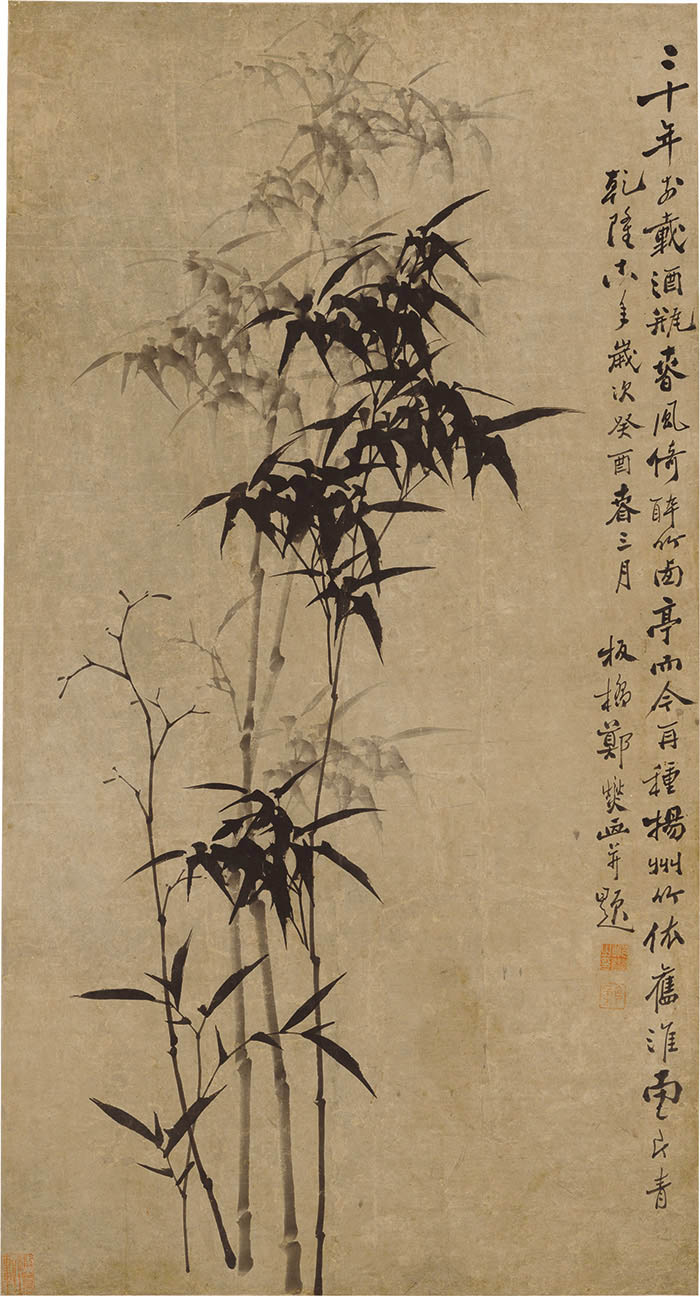 二十年前載酒瓶春風倚醉竹西亭而今再種揚州竹依舊淮南一片青
乾隆十八年歲次癸酉春三月 板橋鄭燮畫并題